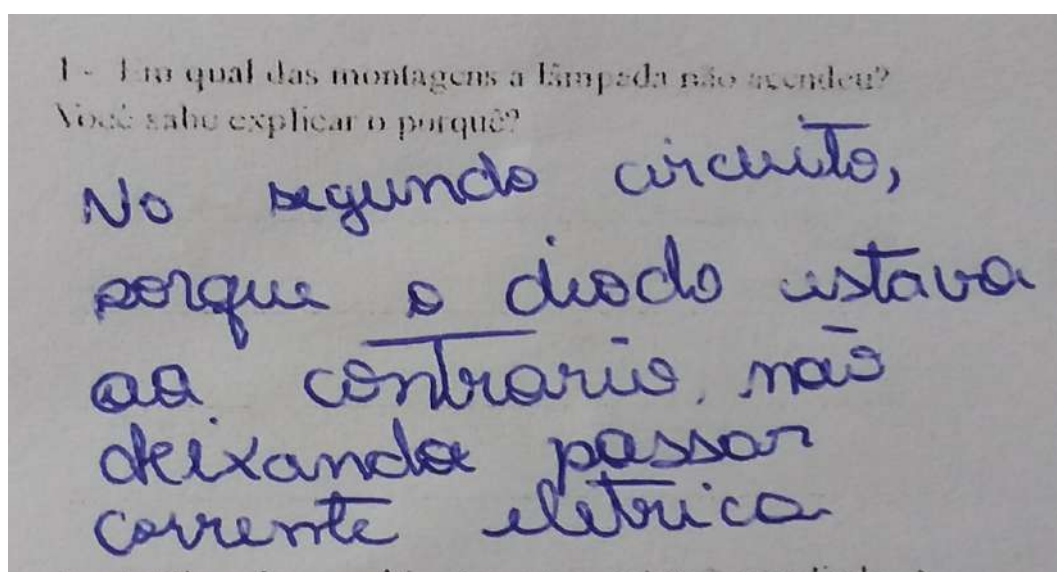 1 - Em qual das montagens a lâmpada não acendeu?
Você sabe explicar o porquê?
No segundo circuito,
porque o diodo estava
ao contrario, não
deixando passar
corrente eletrica